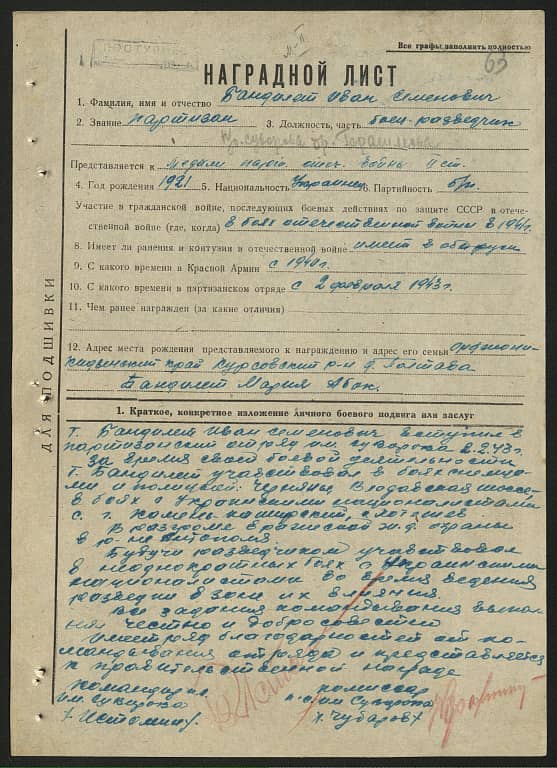 ПОСТУПИЛ
м-II
Все графы заполнять полностью
63
НАГРАДНОЙ ЛИСТ
1. Фамилия, имя и отчество Бандилет Иван Семенович
2. Звание партизан 3. Должность, часть боец-разведчик
Представляется к Медали парт. отеч. войны II ст.
4. Год рождения 1921 5. Национальность Украинец 6. Партийность б/п.
Участие в гражданской войне, последующих боевых действиях по защите СССР в отече-
ственной войне (где, когда) в боях отечественной войны в 1941г.
8. Имеет ли ранения и контузии в отечественной войне имеет в обе руки
9. С какого времени в Красной Армии с 1940г.
10. С какого времени в партизанском отряде с 2 февраля 1943г.
11. Чем ранее награжден (за какие отличия)
12. Адрес места рождения представляемого к награждению и адрес его семьи орджони-
кидзенский край Курсовский р-н д. Полтава
Бандилет Мария
ДЛЯ ПОДШИВКИ
1. Краткое, конкретное изложение личного боевого подвига или заслуг
т. Бандилет Иван Семенович вступил в
партизанский отряд им. Суворова 2.2.43г.
За время своей боевой деятельности
т. Бандилет участвовал в боях с немца-
ми и полицией: Черняны Влодавская шоссе
в боях с Украинскими националистами
с. г. Камень каширский,
В разгроме вражеской ж.д. охраны
в р-не Антополя.
Будучи разведчиком участвовал
в неоднократных боях с Украинскими
националистами во время ведения
разведки в зоне их влияния.
Все задания командования выпол-
нял честно и добросовестно
Имеет ряд благодарностей от ко-
мандования отряда и представляется
к правительственной награде
Командир п.о. комиссар
им. Суворова п.о. им Суворова
/Истомин/ /Чубаров/